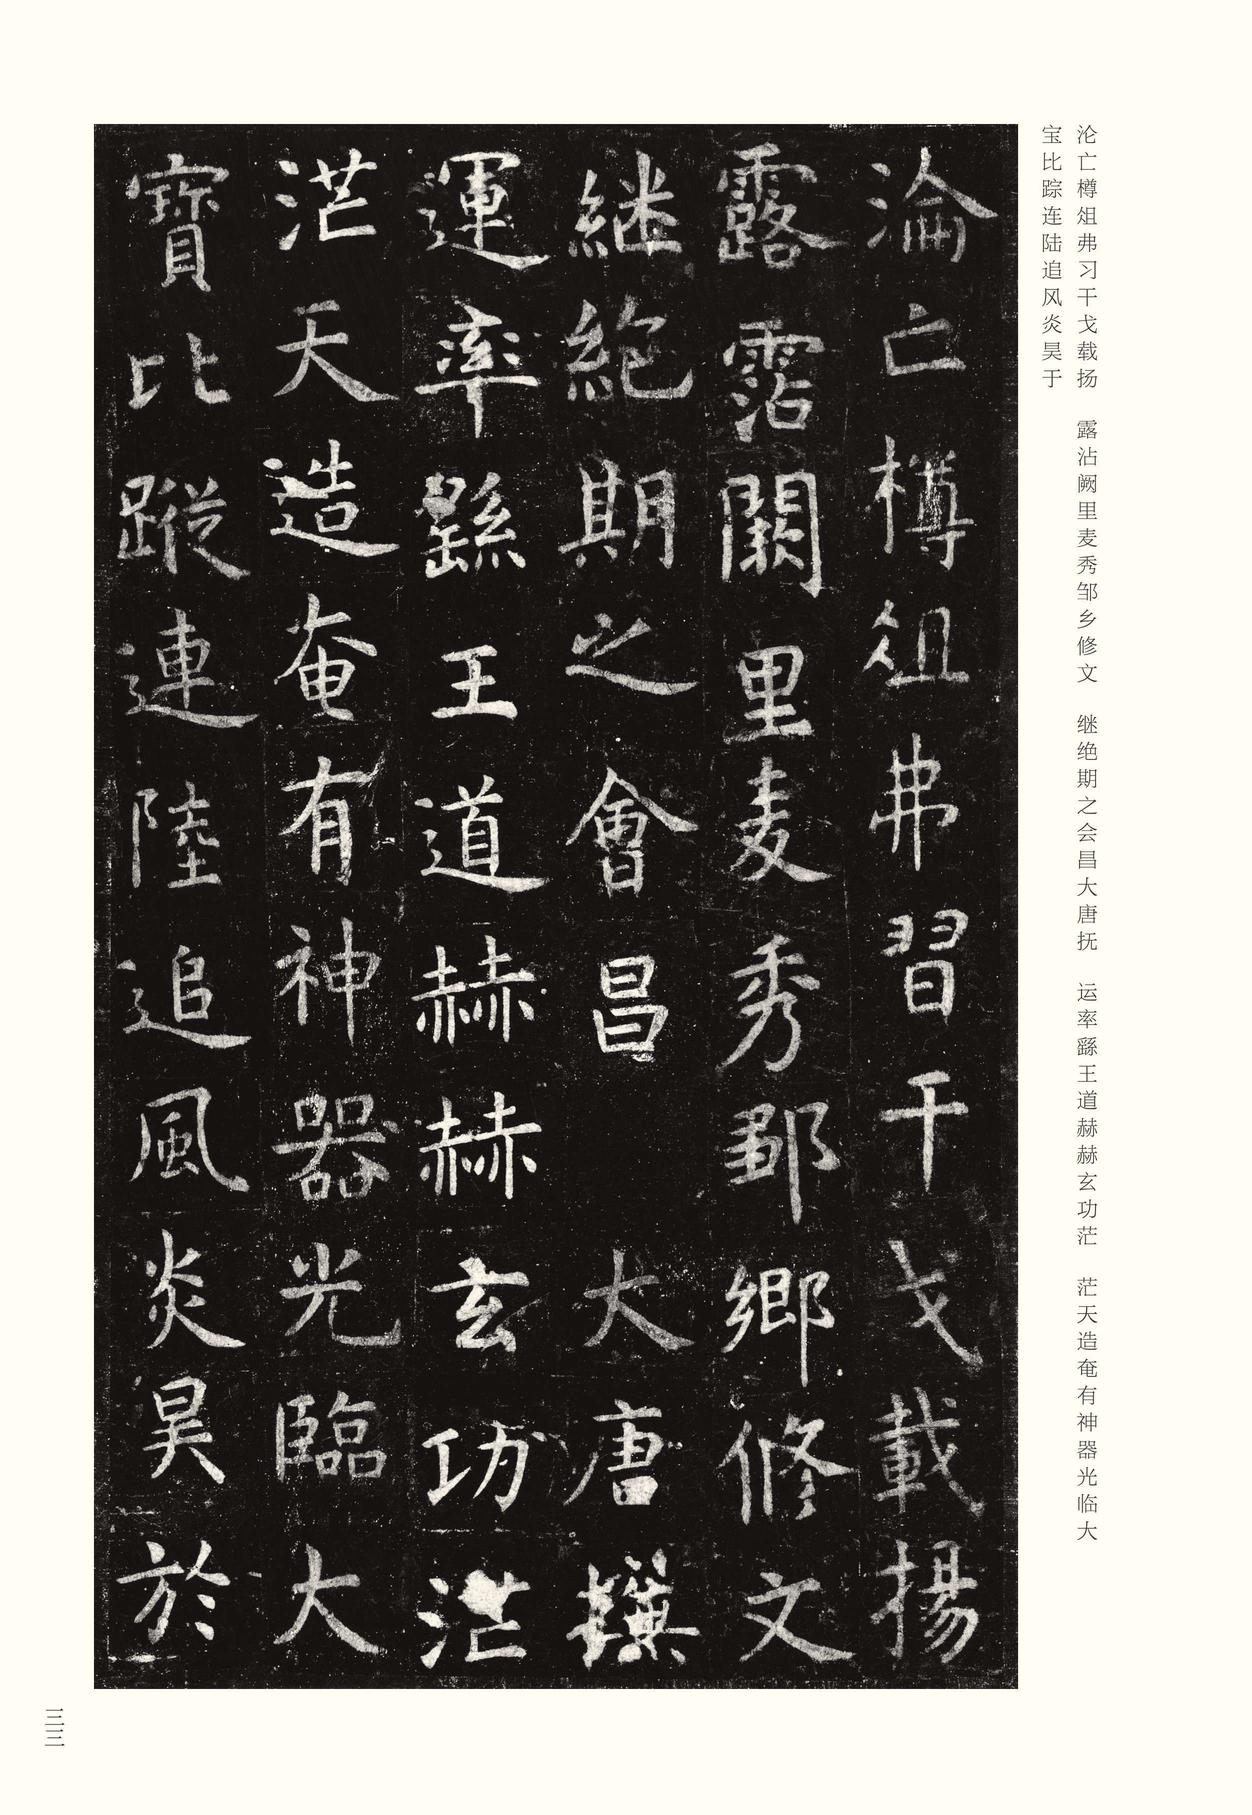 沦亡樽俎弗习干戈载扬　露沾阙里麦秀邹乡修文　继绝期之会昌大唐抚　运率繇王道赫赫玄功茫　茫天造奄有神器光临大
宝比踪连陆追风炎昊于
淪亡樽俎弗習干戈載揚
露霑闕里麦秀鄒鄉修文
継絶期之會昌大唐撫
運率繇王道赫赫玄功茫
茫天造奄有神器光臨大
寶比蹤連陸追風炎昊於
三三